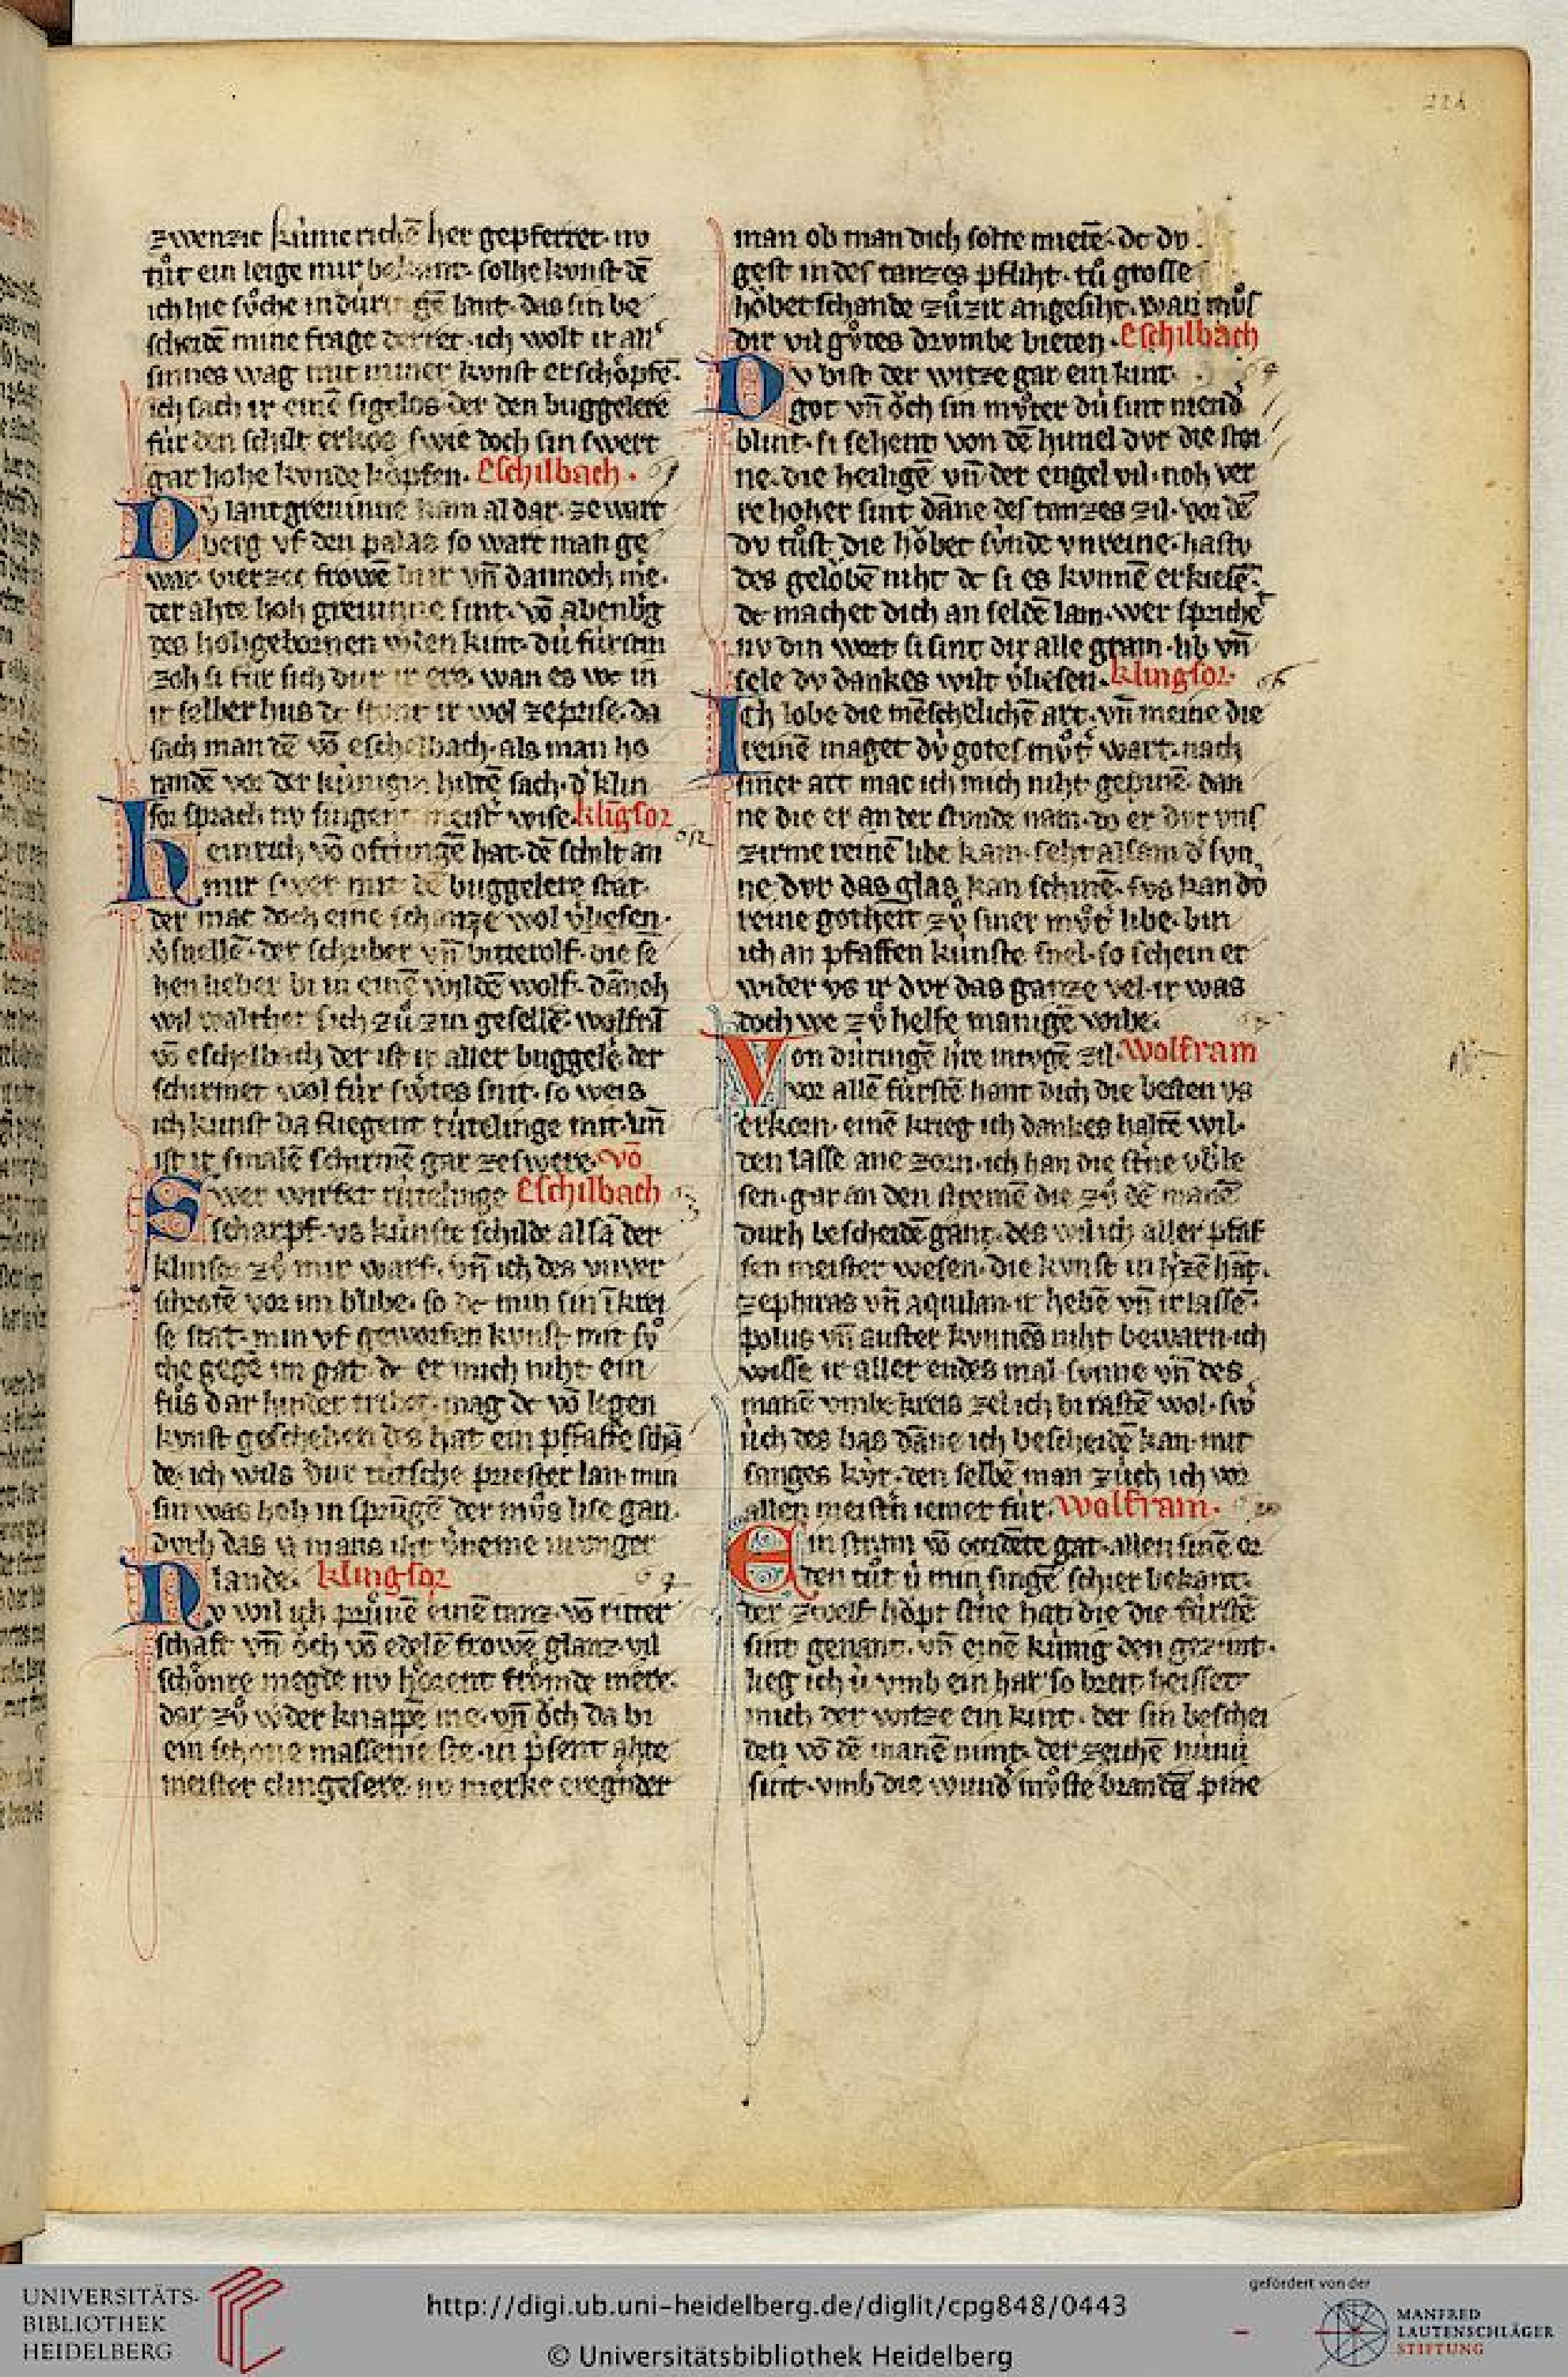 221
zwenzic künicrichē her gepferret. nv
tůt ein leige mir bekant. solhe kvnst dē
ich hie sůche in düringē lant. das sin be
scheidē mine frage derret. ich wolt ir alſ
sinnes wag mit miner kvnst erschöpfē.
ich sach ir einē sigelos. der den buggelere
für den schilt erkos. swie doch sin swert
gar hohe kvnde köpfen. Eschilbach.
Dv̍ lantgrevinne kam al dar. ze wart
berg vf den palas so wart man ge
war. vierzec frowē mir vn̄ dannoch me.
der ahte hoh grevinne sint. vō abenbg
des hohgebornen wden kint. dü fürstin
zoh si für sich dur ir ere. wan es wc in
ir selber hus dc stvnt ir wol ze prise. da
sach man dē vō eschelbach. als man ho
randē vor der künigin hiltē sach. d' klin
sor sprach nv singent meist' wise. klīgsor
heinrich vō oftringē hat. dē schilt an
mir swer mit dē buggelere stat.
der mac doch eine schanze wol v'liesen.
v̍ snellē. der schriber vn̄ bitterolf. die se
hen lieber bi in einē wildē wolf. dānoch
wil walther sich zů zin gesellē. wolfrā
vō eschelbach der ist ir aller buggelē. der
schirmet wol für swtes snit. so weis
ich kunst da fliegent tütelinge mit. vn̄
ist ir smalē schirmē gar ze swere. vō
Swer wirfet tüttelinge Eschilbach
scharpf. vs künste schilde alsā der
klinsor zů mir warf. vn̄ ich des vnver
schrotē vor im blibe. so dc min sin ī krei
se stat. min vf geworfen kvnst mit sů
che gegē im gat. dc er mich niht ein
fůs dar hinder tribet. mag dc vō leigen
kvnst geschehen des hat ein pfaffe schā
de. ich wils dur tütsche priester lan. min
sin was hoh in sprüngē der můs lise gan.
dvrh das v̍ mans iht v'neme in vnger
lande. klingsor
Nv wil ich prüuē einē tanz. vō ritter
schaft vn̄ öch vō edelē frowē glanz. vil
schönre megde nv hörent frömde mere.
dar zů wder knappē me. vn̄ öch da bi
ein schone massenie ste. in p̍sent ahte
meister clingesere. nv merke eregnder
man ob man dich solte mietē. dc dv
gest in des tanzes pfliht. tů grosse
höbet schande zů zir angesiht. wan můs
dir vil gůtes drvmbe bieten. Eschilbach
Dv bist der witze gar ein kint.
got vn̄ öch sin můter dü sint niend'
blint. si sehent von dē himel dvr die stei
ne. die heiligē vn̄ der engel vil. noh ver
re hoher sint dāne des tanzes zil. vor dē
dv tůst die höbet sünde vnreine. hastv
des gelöbē niht dc si es kvnnē erkiesē.
dc machet dich an seldē lam. wer spriche
nv din wort si sint dir alle gram. lib vn̄
sele dv dankes wilt v̍liesen. klingsor.
Ich lobe die mēschelichē art. vn̄ meine die
reinē maget dv̍ gotes můt' wart. nach
siner art mac ich mich niht gepinē. dan
ne die er an der stvnde nam. do er dvr vns
zir me reinē libe kam. seht alsam d' svn
ne dvr das glas kan schinē. svs kan dv̍
reine gotheit zů siner můt' libe. bin
ich an pfaffen künste snel. so schein er
wider vs ir dvr das ganze vel. ir was
doch we zů helfe manigē wibe.
Von düringē h're in tvgē zil. Wolfram
vor allē fürstē hant dich die besten vs
erkorn. einē krieg ich dankes haltē wil.
den lasse ane zorn. ich han die st'ne vb'le
sen. gar an den stremē die zů dē manē
durh bescheidē gant. des wil ich aller pfaf
fen meister wesen. die kvnst in lyzē hāt.
zephirus vn̄ aquilan. ir hebē vn̄ ir lassē.
polus vn̄ auster kvnnēs niht bewarn. ich
wisse ir aller endes mal. svnne vn̄ des
manē vmbe kreis zel ich bi rastē wol. swˢ
üch des bas dāne ich bescheidē kan. mit
sanges kür. den selbē man züch ich vor
allen meist'n iemer für. Wolfram.
Ein strām vō occidēte gat. allen sinē or
den tůt ü min singē schier bekant.
der zwelf höpt st'ne hat die die fürstē
sint genant. vn̄ einē künig den gezimt.
lieg ich ü vmb ein har so breit heisset
mich der witze ein kint. der sin beschei
den vō dē manē nimt. der zeichē nünü
sint. vmb die wund' můste brandā pine
UNIVERSITÄTS-
BIBLIOTHEK
HEIDELBERG
http://digi.ub.uni-heidelberg.de/diglit/cpg848/0443
© Universitätsbibliothek Heidelberg
gefördert von der
MANFRED
LAUTENSCHLÄGER
STIFTUNG